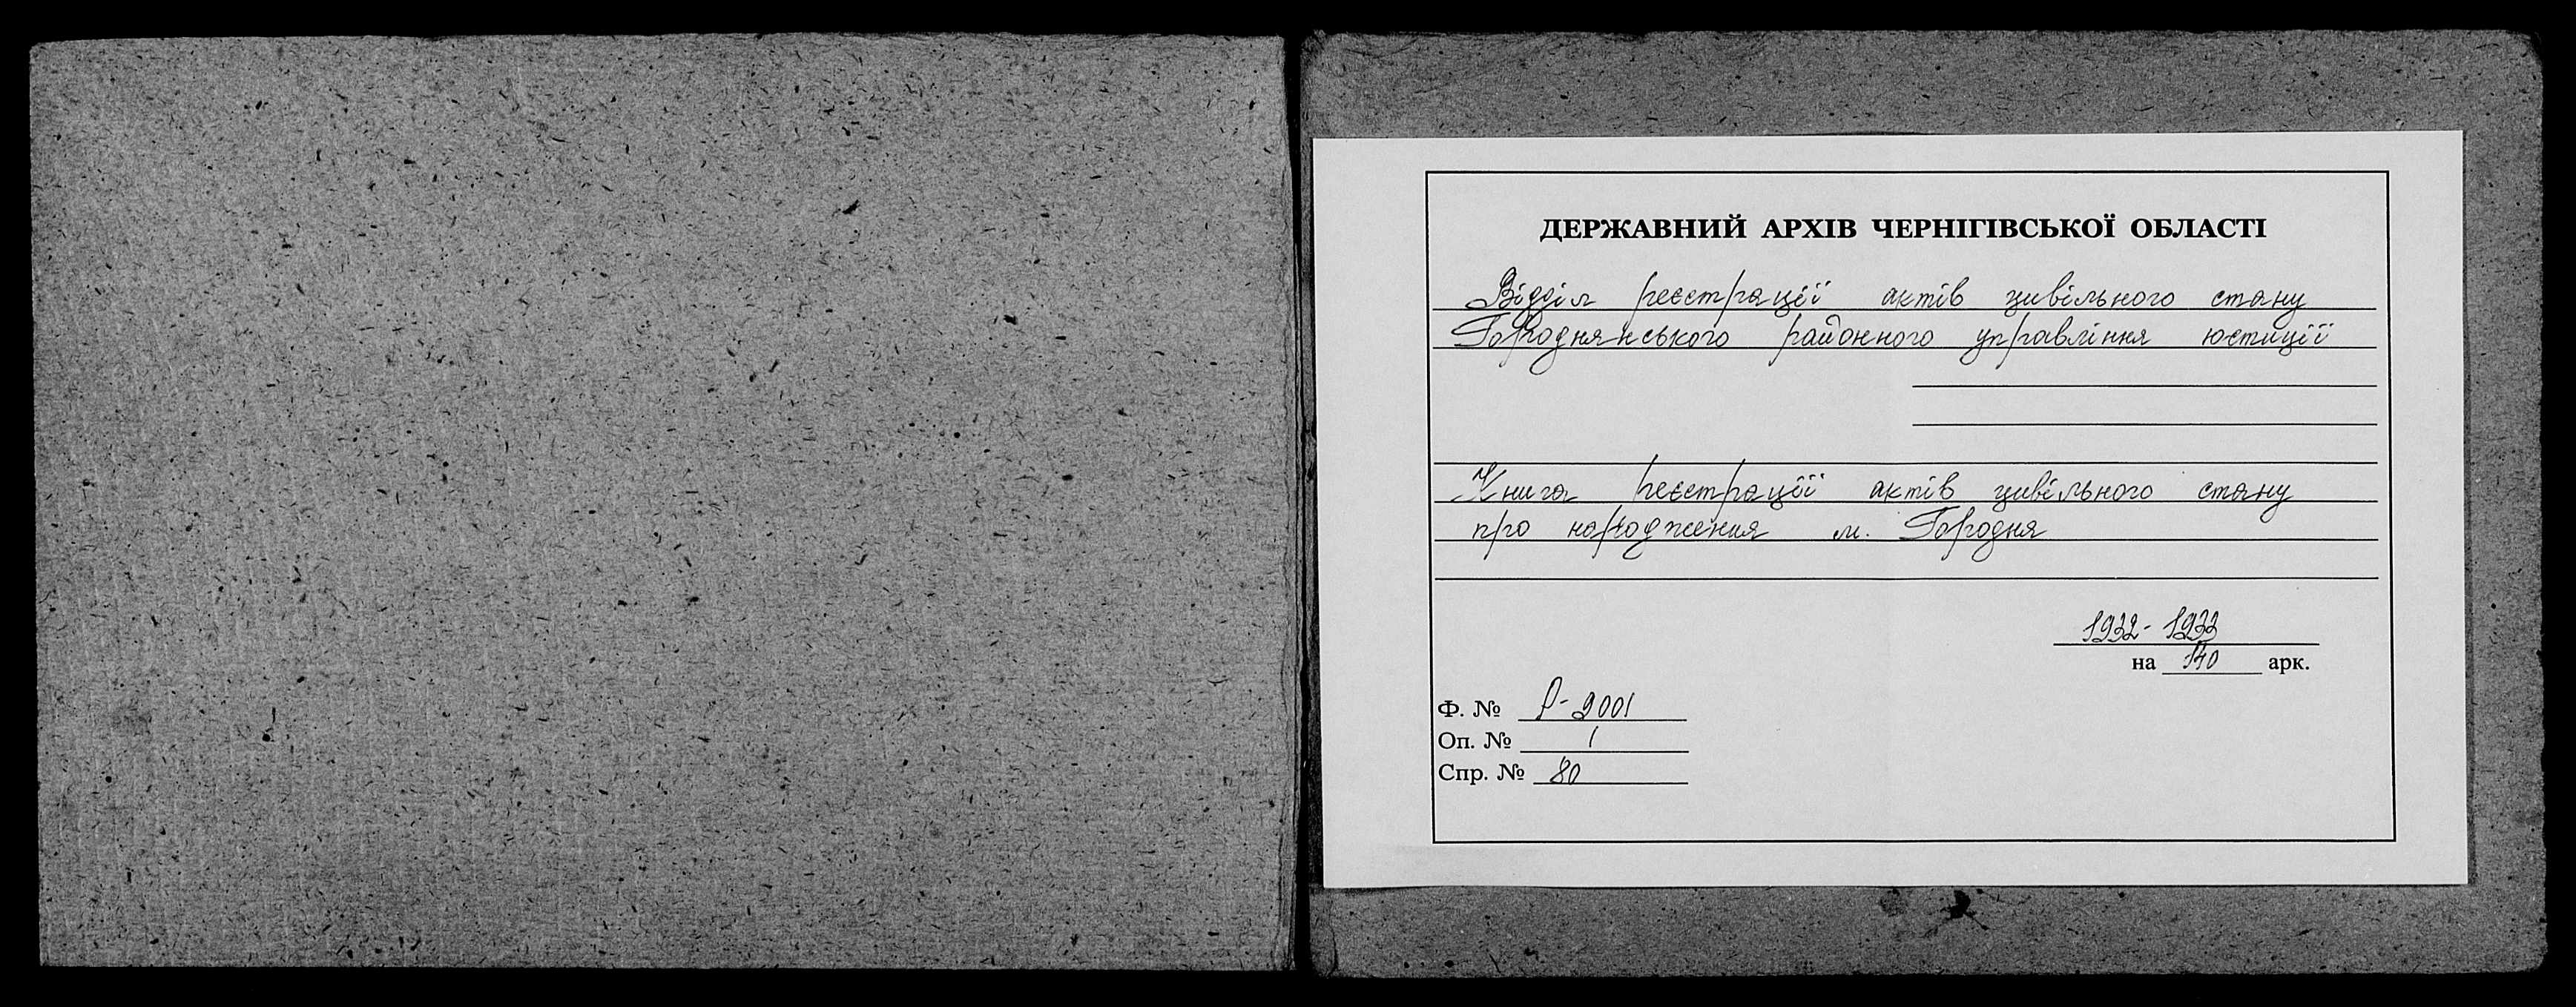 ДЕРЖАВНИЙ АРХІВ ЧЕРНІГІВСЬКОЇ ОБЛАСТІ
Відділ реєстрації актів цивільного стану
Городнянського районного управління юстиції
Книга реєстрації актів цивільного стану
про народження м. Городня
1932-1933
на 140 арк.
Ф. № Р-9001
Оп. № 1
Спр. № 80